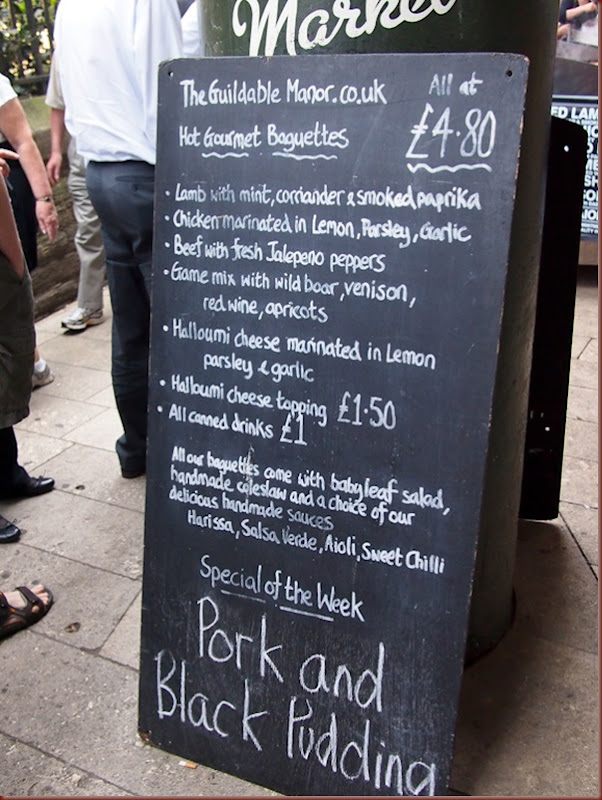 Market
The Guildable Manor.co.uk
All at
Hot Gourmet Baguettes
£4.80
· Lamb with mint, corriander & smoked paprika
· Chicken marinated in Lemon, Parsley, Garlic
· Beef with fresh Jalepeno peppers
· Game mix with wild boar, venison,
red wine, apricots
· Halloumi cheese marinated in Lemon
parsley & garlic
· Halloumi cheese topping £1.50
· All canned drinks £1
All our baguettes come with babyleaf salad,
handmade coleslaw and a choice of our
delicious handmade sauces
Harissa, Salsa Verde, Aioli, Sweet Chilli
Special of the Week
Pork and
Black Pudding